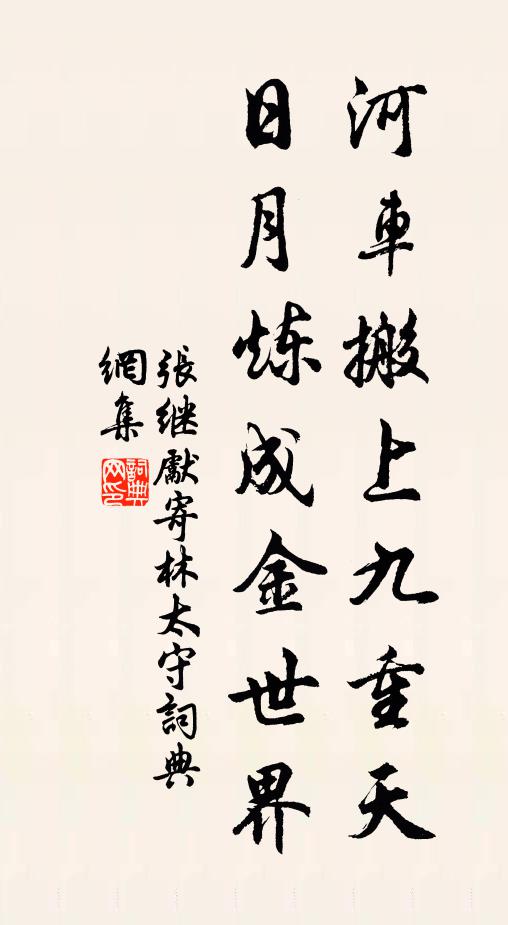 河車搬上九重天
日月炼成金世界
張继獻寄林太守詞典
網集
詞典
网印